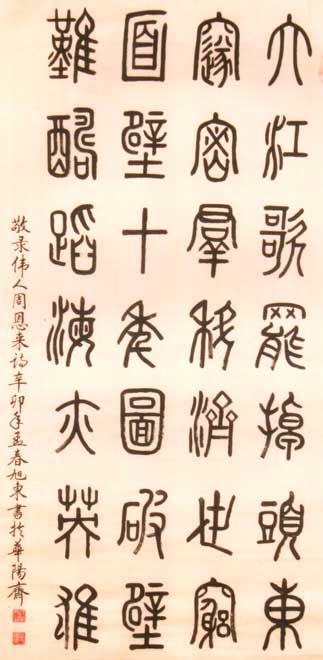 大江歌罷掉頭東
邃密羣科濟世窮
面壁十年圖破壁
難酬蹈海亦英雄
敬录伟人周恩来诗辛卯年孟春旭东書於華陽齊